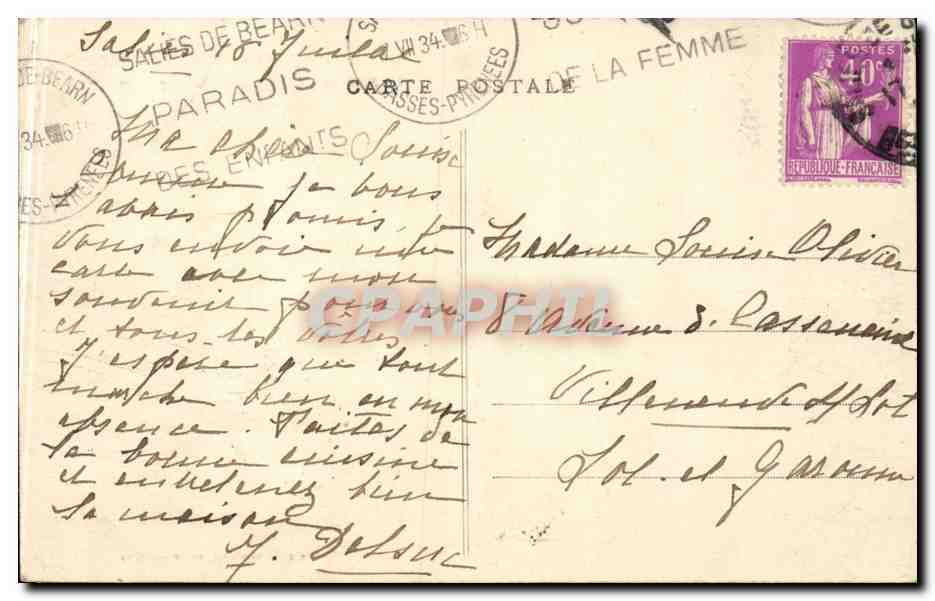 SALIES DE BEARN
PARADIS
DES ENFANTS
VII 34
BASSES-PYRENEES
DE LA FEMME
DE-BEARN
34
Salies 18 Juillet
CARTE POSTALE
POSTES
40c
REPUBLIQUE-FRANÇAISE
Ma chère Louise
je vous
avais promis je
vous envoie une
carte avec mon
souvenir pour vous
et tous les votres
J'espère que tout
marche bien en mon
absence. Faites de
la bonne cuisine
et entretenez bien
la maison
Madame Louis Olivier
8 Avenue
Villeneuve s/ Lot
Lot et Garonne
CPAPHIL